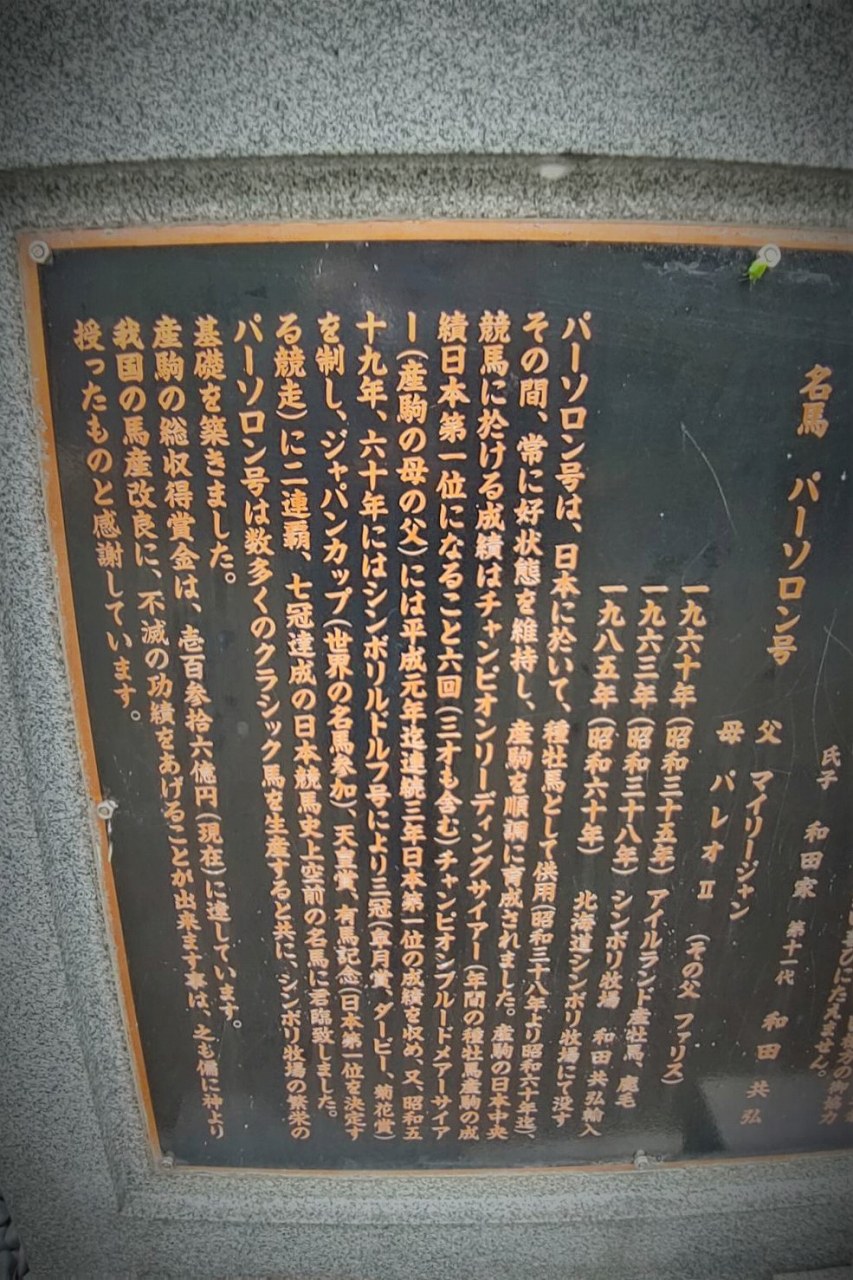 びにたえません。
方の御協力
氏子 和田家 第十一代 和田共弘
名馬 パーソロン号
父 マイリージャン
母 パレオⅡ (その父 ファリス)
一九六十年(昭和三十五年)アイルランド産牡馬、鹿毛
一九六三年(昭和三十八年)シンボリ牧場 和田共弘輸入
一九八五年(昭和六十年) 北海道シンボリ牧場にて没す
パーソロン号は、日本に於いて、種牡馬として供用(昭和三十八年より昭和六十年迄)、
その間、常に好状態を維持し、産駒を順調に育成されました。産駒の日本中央
競馬に於ける成績はチャンピオンリーディングサイアー(年間の種牡馬産駒の成
績日本第一位になること六回(三才も含む)チャンピオンブルードメアーサイア
ー(産駒の母の父)には平成元年迄連続三年日本第一位の成績を収め、又、昭和五
十九年、六十年にはシンボリルドルフ号により三冠(皐月賞、ダービー、菊花賞)
を制し、ジャパンカップ(世界の名馬参加)、天皇賞、有馬記念(日本第一位を決定す
る競走)に二連覇、七冠達成の日本競馬史上空前の名馬に君臨致しました。
パーソロン号は数多くのクラシック馬を生産すると共に、シンボリ牧場の繁栄の
基礎を築きました。
産駒の総収得賞金は、壱百参拾六億円(現在)に達しています。
我国の馬産改良に、不滅の功績をあげることが出来ます事は、之も偏に神より
授ったものと感謝しています。